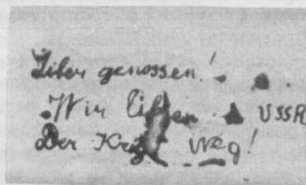 Liber genossen!
Wir lieben USSR
Der Krieg weg!